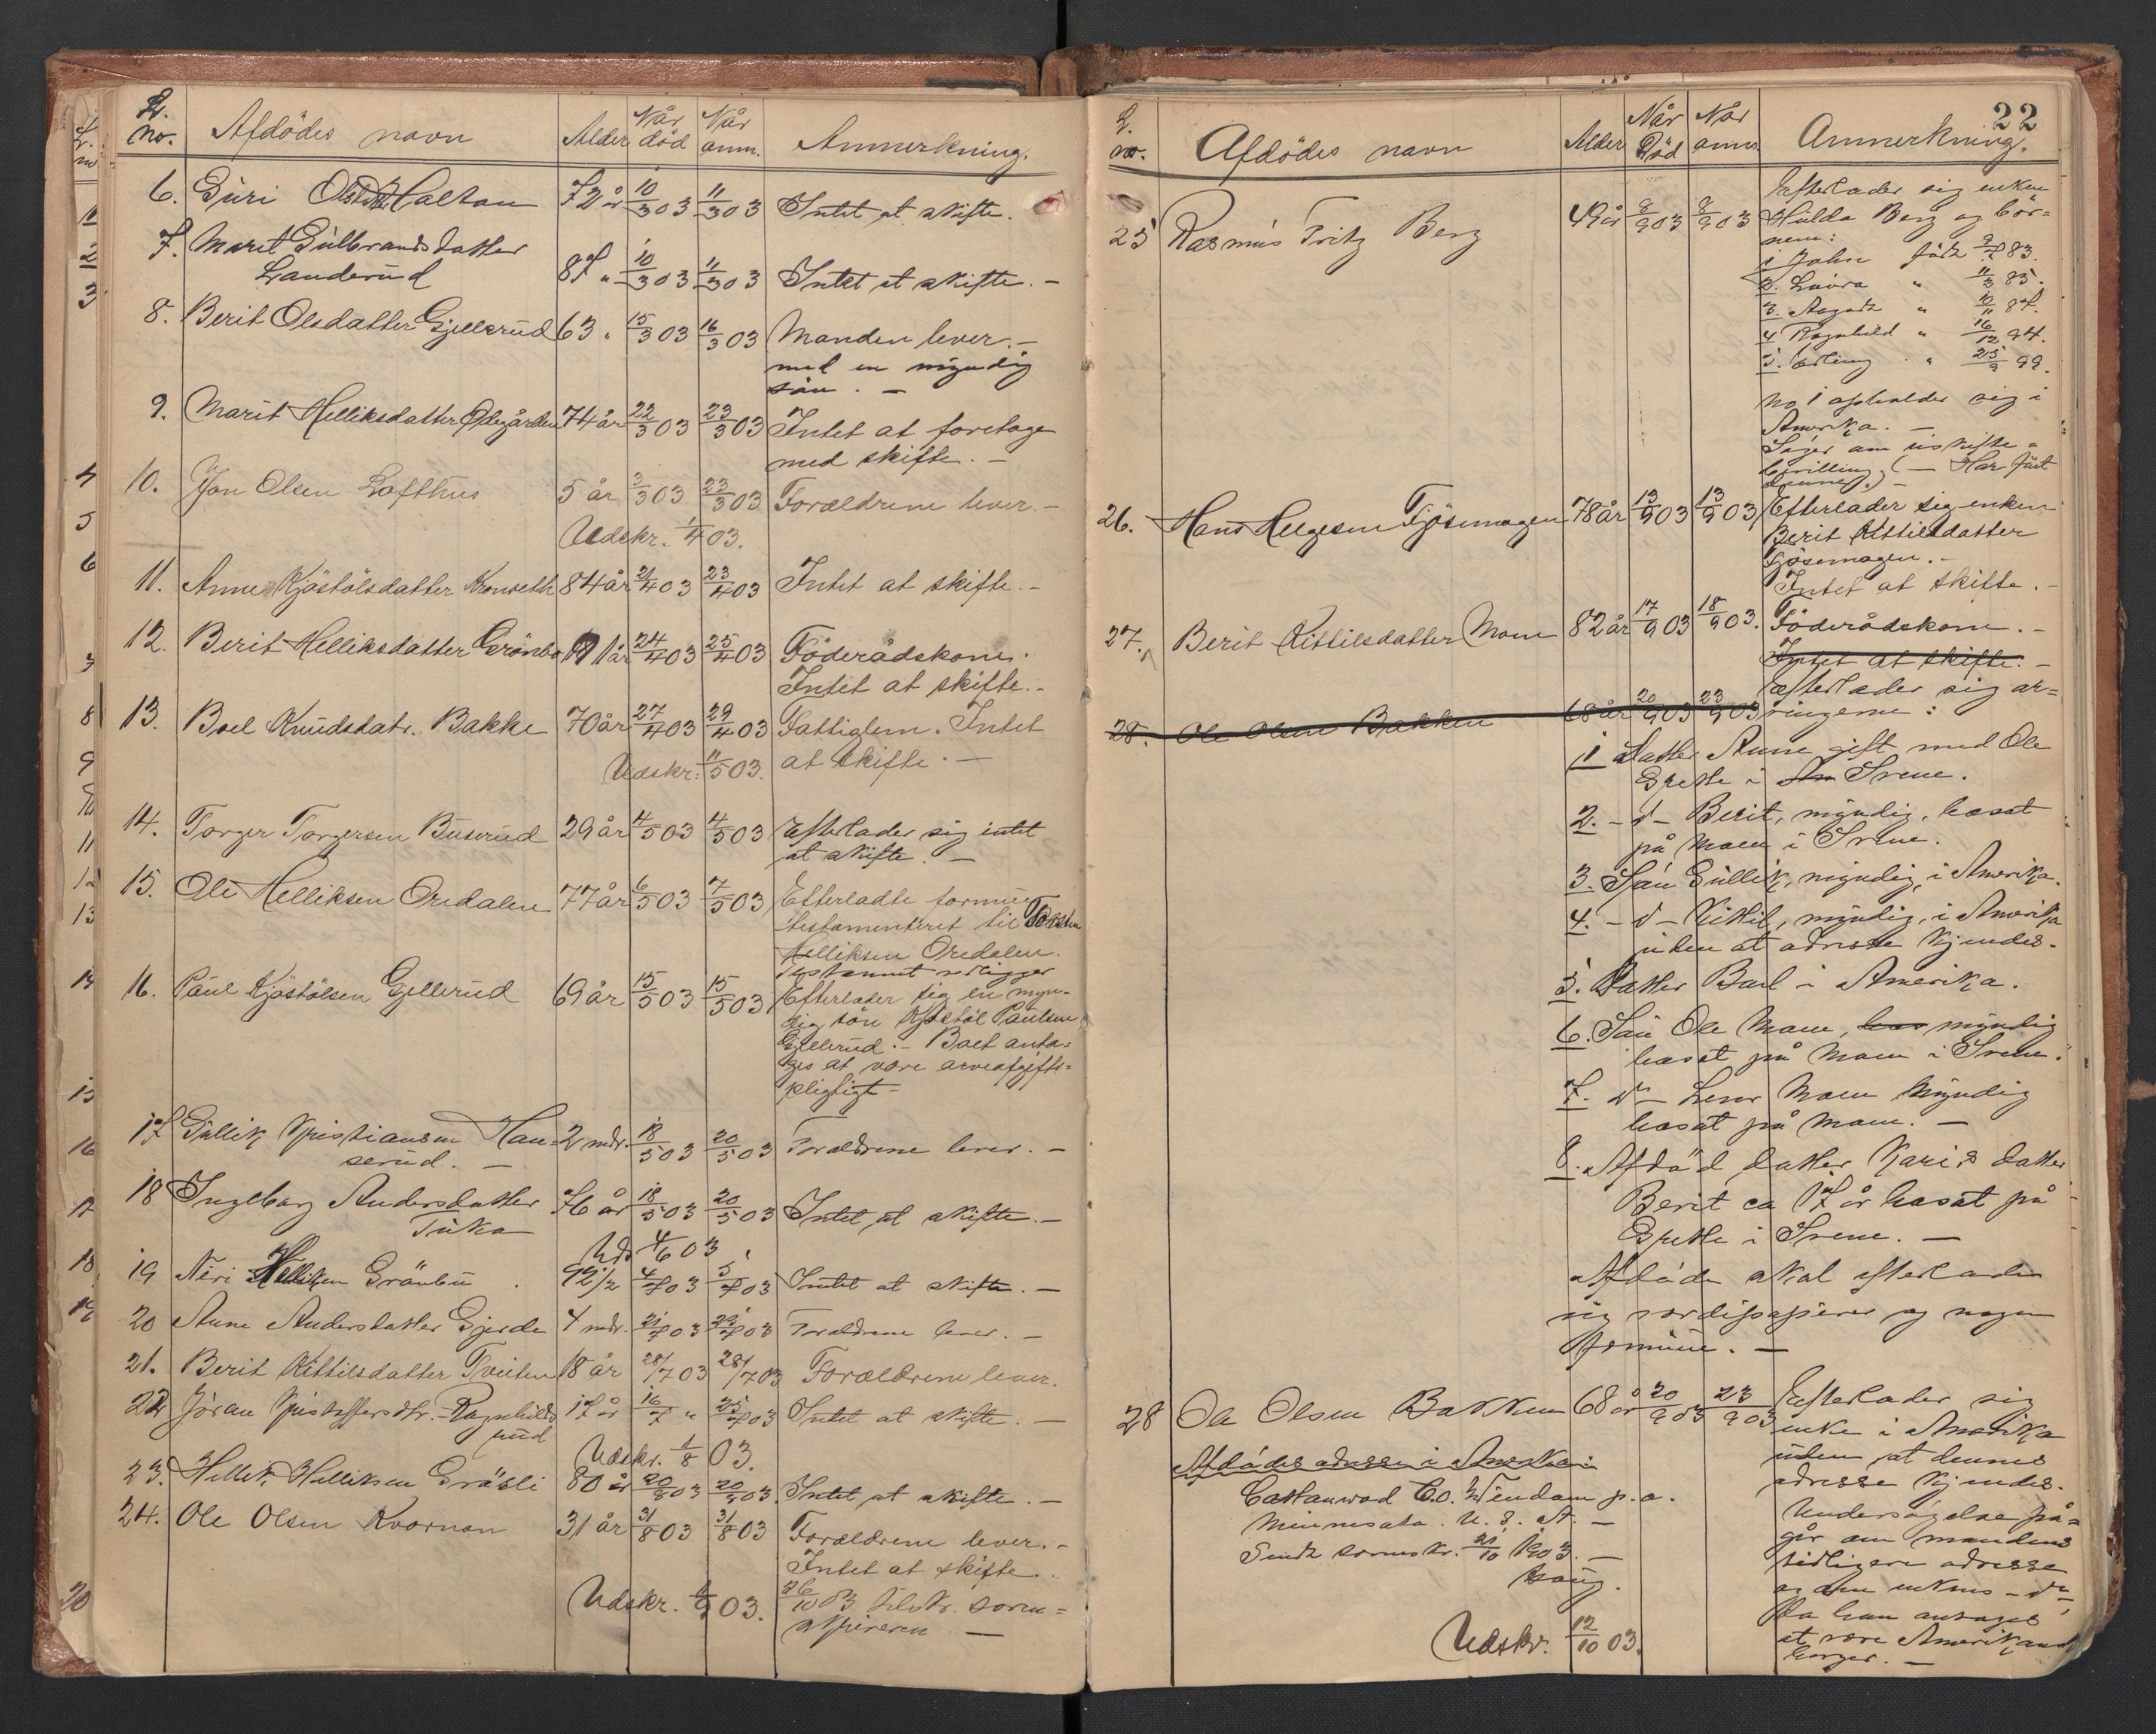 L. no. Afdödes navn Alder Når död Når anm. Anmerkning.
6. Guri Olsdatter Haltan 72 år 10/3 03 11/3 03 Intet at skifte.
7. Marit Gulbrandsdatter
Landerud 87 " 10/3 03 11/3 03 Intet at skifte. –
8. Berit Olsdatter Gjellerud 63 " 15/3 03 16/3 03 Manden lever. –
med en myndig
sön. –
9. Marit Helliksdatter Ödegården 74 år 22/3 03 23/3 03 Intet at foretage
med skifte. –
10. Jon Olsen Lofthus 5 år 3/3 03 23/3 03 Forældrene lever. –
Udskr. 1/4 03.
11. Anne Kjöstölsdatter 84 år 21/4 03 23/4 03 Intet at skifte. –
12. Berit Helliksdatter Grönbo 1 år 24/4 03 25/4 03 Föderådskone.
Intet at skifte. –
13. Boel Knudsdatr. Bakke 70 år 27/4 03 29/4 03 Fattiglem. Intet
Udskr: 11/5 03. at skifte. –
14. Torger Torgersen Buserud 29 år 4/5 03 4/5 03 Efterlader sig intet
at skifte. –
15. Ole Helliksen Oredalen 77 år 6/5 03 7/5 03 Efterladte formue
testamenteret til Torsten
Helliksen Oredalen.
Testament vedligger
16. Paul Kjöstölsen Gjellerud 69 år 15/5 03 15/5 03 Efterlader sig en myn-
dig sön Kjöstöl Paulsen
Gjellerud. – Boet anta-
ges at være arveafgifts-
pligtigt –
17 Gullik Kristiansen Hau- 2 mdr. 18/5 03 20/5 03 Forældrene lever. –
serud. –
18 Ingeborg Andersdatter 76 år 18/5 03 20/5 03 Intet at skifte. –
Tuka
Uds 4/6 03
19 Neri Helliksen Grönbu 92 1/2 4/7 03 5/7 03 Intet at skifte. –
20 Anne Andersdatter Gjerde 4 mdr. 21/7 03 22/7 03 Forældrene lever. –
21. Berit Kittilsdatter Tveiten 18 år 28/7 03 28/7 03 Forældrene lever.
22 Jöran Kristoffersdtr. Ragnhilds 17 år 16/7 " 25/7 03 Intet at skifte. –
rud
Udskr. 1/8 03.
23. Hellik Helliksen Gråsli 80 år 20/8 03 20/8 03 Intet at skifte. –
24. Ole Olsen Kvornan 31 år 31/8 03 31/8 03 Forældrene lever. –
Intet at skifte.
Udskr. 1/9 03. 26/10 03 tilskr. soren-
skriveren –
22
L. no. Afdödes navn Alder Når Död Når anm Anmerkning.
25 Rasmus Fritz Berg 49 år 8/9 03 8/9 03 Efterlader sig enken
Hulda Berg og bör-
nene:
1 John födt 9/7 83.
2. Laura " 11/3 85.
3. Aagodt " 10/11 87.
4 Ragnhild " 16/12 94.
5. Erling " 25/9 99.
No 1 opholder sig i
Amerika. –
Söger om uskifte-
bevilling. (– Har fået
denne). –
26. Hans Helgesen Fjösemogen 78 år 13/9 03 13/9 03 Efterlader sig enken
Berit Kittilsdatter
Fjösemogen. –
Intet at skifte. –
27. Berit Kittilsdatter Moen 82 år 17/9 03 18/9 03. Föderådskone. –
Intet at skifte. –
Efterlader sig ar-
28. Ole Olsen Bakken 68 år 20/9 03 23/9 03 vingerne:
1 Datter Anne gift med Ole
Espesett i Svene.
2. – d – Berit, myndig, bosat
på Moen i Svene.
3. Sön Gullik, myndig, i Amerika.
4. – d – Kittil, myndig, i Amerika
uden at adresse kjendes.
5. Datter Boel i Amerika.
6. Sön Ole Moen, myndig
bosat på Moen i Svene.
7. d – Lens Moen Myndig
bosat på Moen. –
8. Afdöd datter Karis datter
Berit ca 17 år bosat på
i Svene. –
Afdöde skal efterlade
sig værdipapirer og nogen
formue. –
28 Ole Olsen Bakken 68 år 20/9 03 23/9 03 Efterlader sig
enke i Amerika
Afdödes adresse i Amerika: uden at dennes
Cottonwood Co. Windom p. o. adresse kjendes.
Minnesota. U. S. A. – Undersögelse på-
Sendt sorenskr. 21/10 1903. – går om mandens
Haug. tidligere adresse
og om enkens – d –,
Da han antages
at være Amerikansk
borger. –
Udskr. 12/10 03.